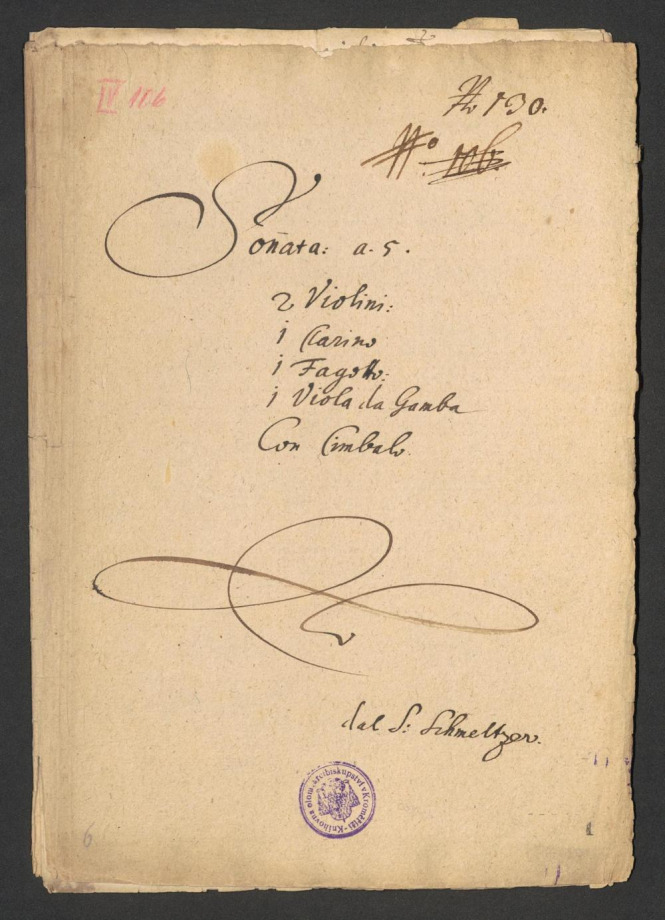 IV 186
No 130.
No 106.
Sonata: a. 5.
2 Violini:
1 Clarino
1 Fagotto:
1 Viola da Gamba
Con Cimbalo.
dal S: Schmeltzer.
Knihovna olom. arcibiskupství v Kroměříži
6
1